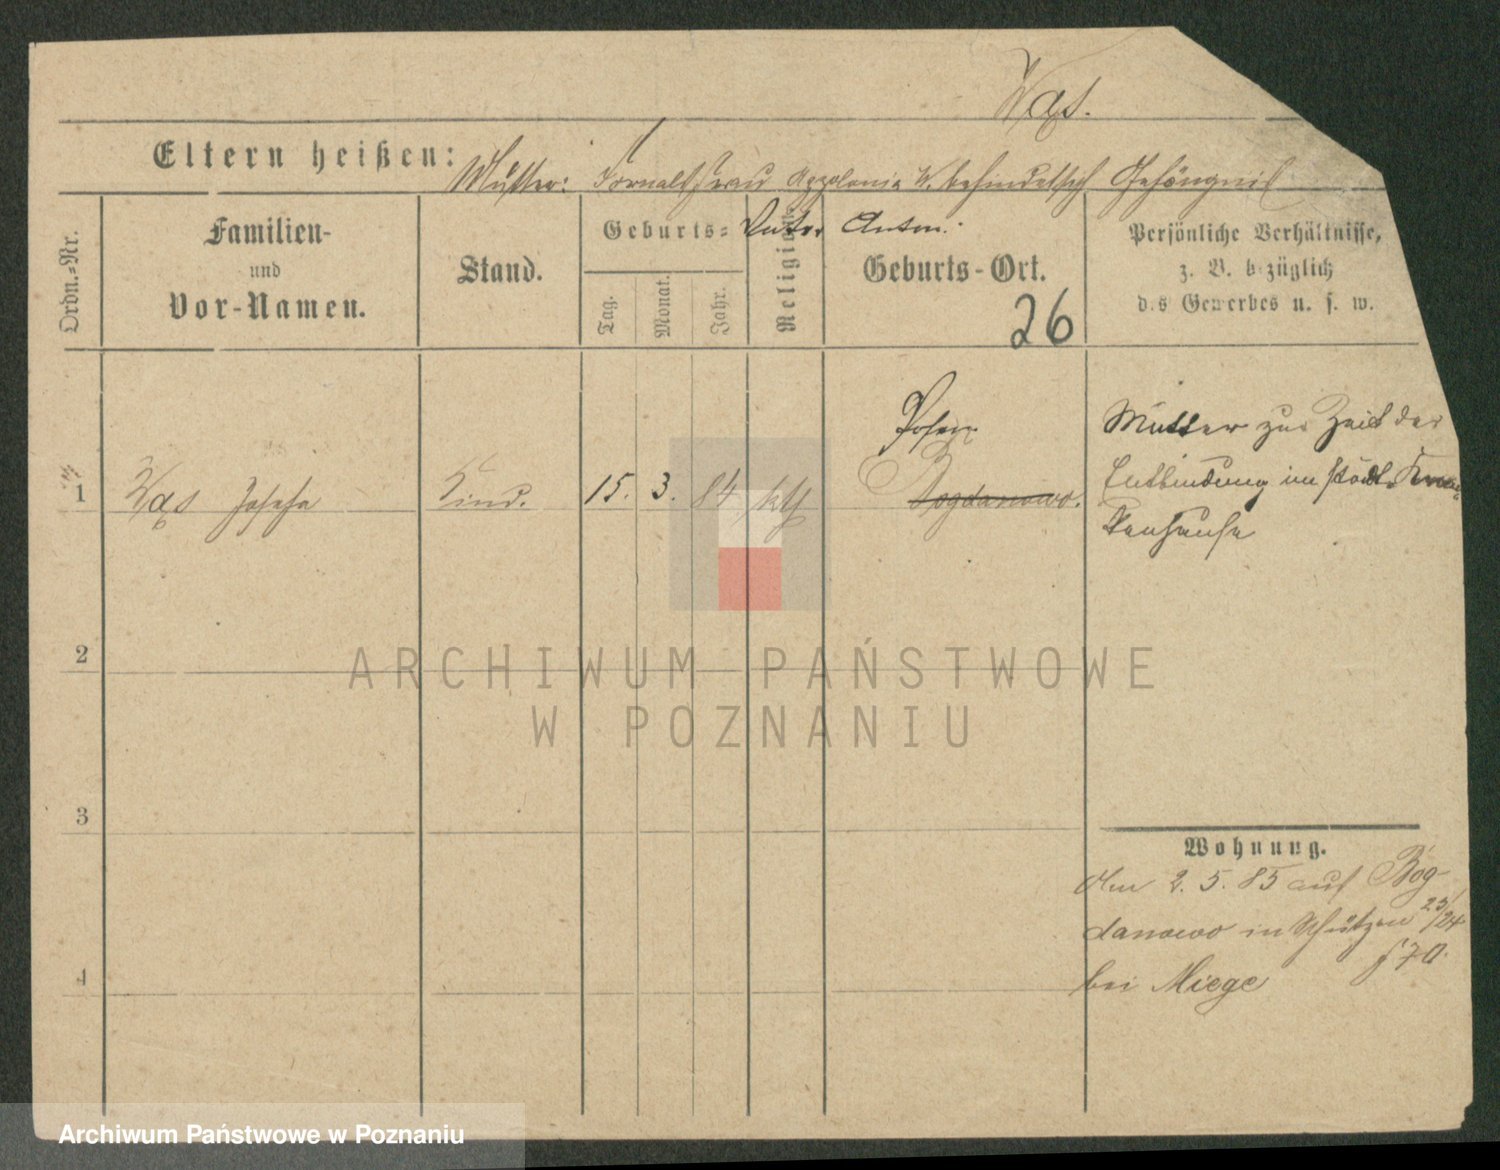 Wąs.
Eltern heißen: Mutter: Fornalsfrau Appolonia W. befindet sich Gefängniß
Vater Anton.
Ordn.-Nr.
Familien-
und
Vor-Namen.
Stand.
Geburts-
Tag.
Monat.
Jahr.
Religion
Geburts-Ort.
26
Persönliche Verhältnisse,
z. B. bezüglich
des Gewerbes u. s. w.
1 Wąs Josefa Kind. 15. 3. 84 kth
Posen
Bogdanowo.
Mutter zur Zeit der
Entbindung im städt. Kran-
kenhause
2
3
4
Wohnung.
Am 2. 5. 85 auf Bog-
danowo in Schützen 23/24
bei Miege
ARCHIWUM PAŃSTWOWE
W POZNANIU
Archiwum Państwowe w Poznaniu